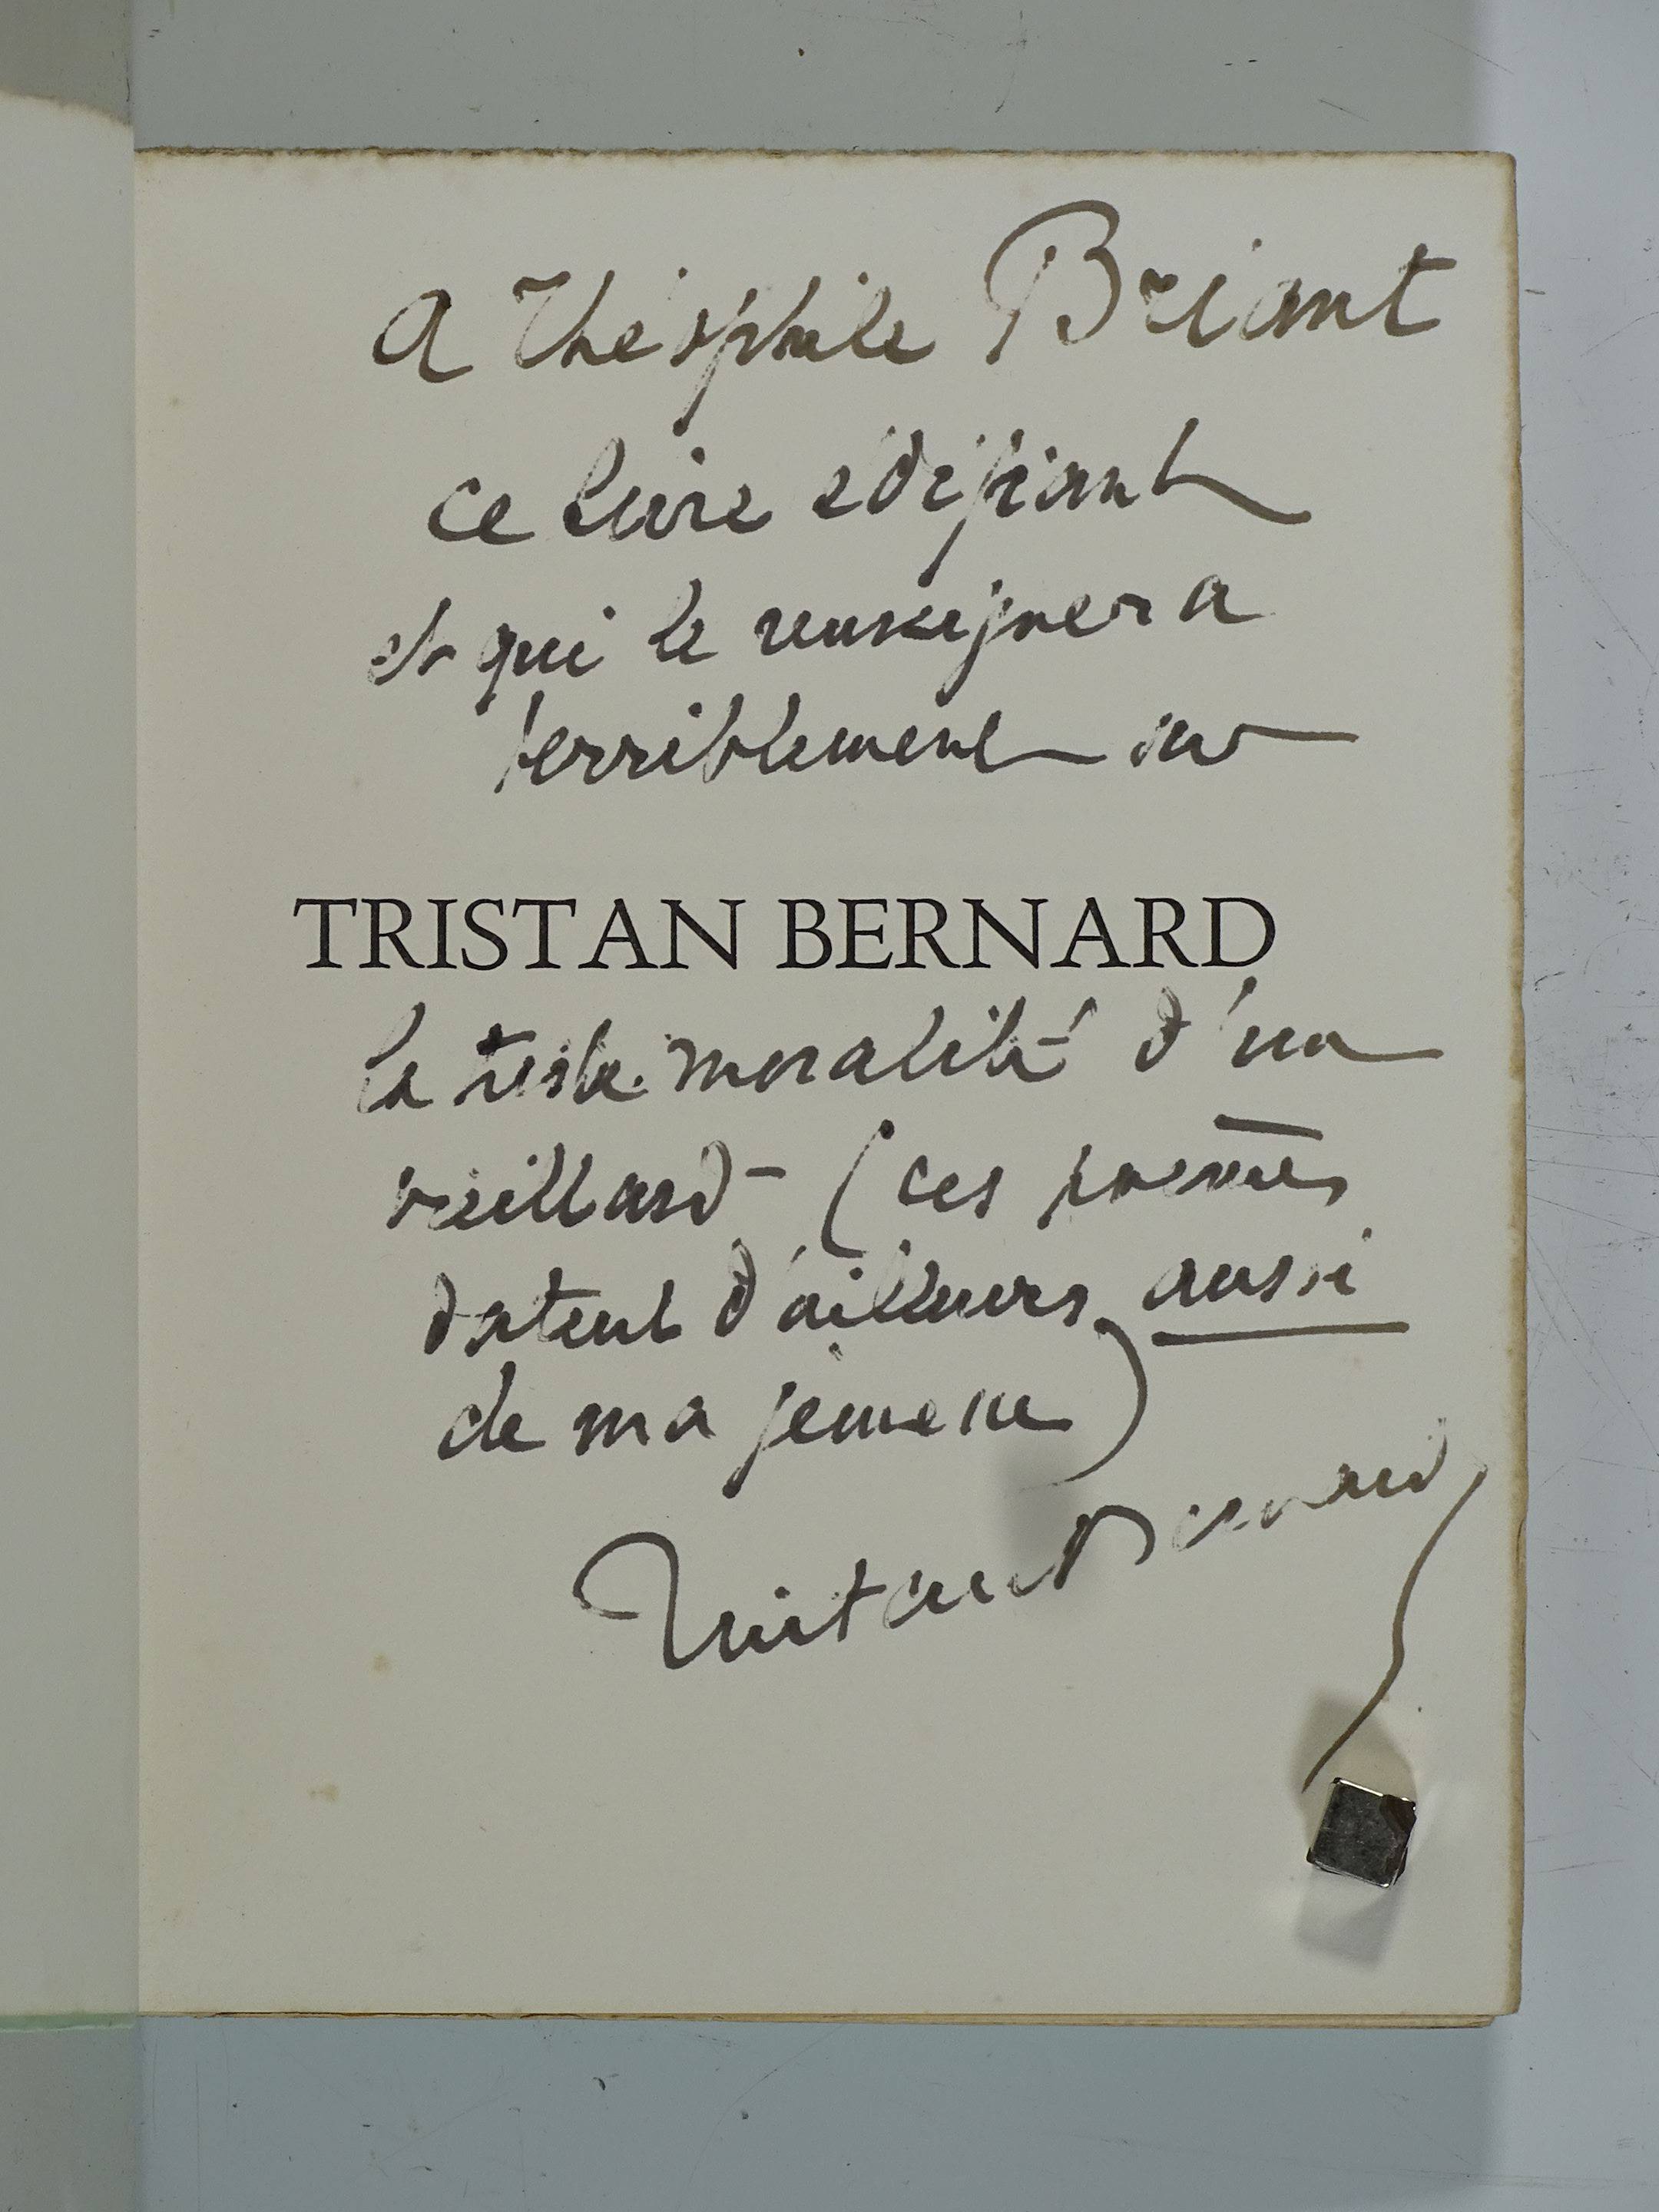 A Théophile Briant
ce livre édifiant
et qui le renseignera
terriblement sur
TRISTAN BERNARD
la triste moralité d'un
vieillard – (ces poèmes
datent d'ailleurs aussi
de ma jeunesse)
Tristan Bernard